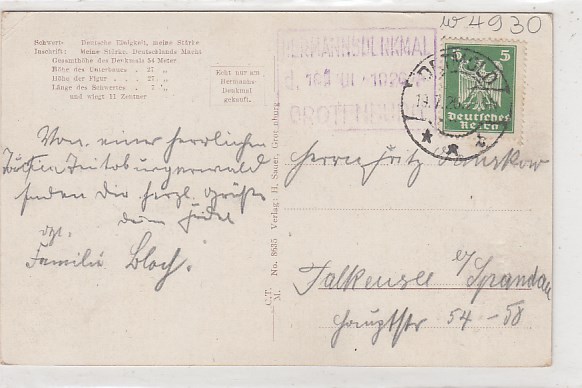 w 4930
Schwert- Deutsche Einigkeit, meine Stärke
Inschrift: Meine Stärke, Deutschlands Macht
Gesamthöhe des Denkmals 54 Meter
Höhe des Unterbaues . 27 "
Höhe der Figur . . . 27 "
Länge des Schwertes . 7 "
und wiegt 11 Zentner
Echt nur am
Hermanns-
Denkmal
gekauft.
HERMANNSDENKMAL
GROTENBURG
DETMOLD
5
Deutsches
Reich
C.T.M. No. 8635 Verlag: H. Sauer, Grotenburg
Von einer herrlichen
Teutoburgerwald
senden die herzl. Grüße
dein
Familie Bloch.
Herrn Fritz
Falkensee b/ Spandau
Hauptstr 54-58